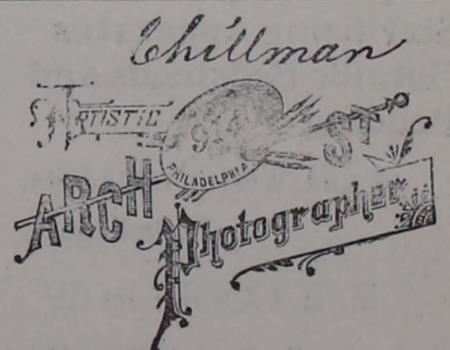 Chillman
ARTISTIC
914
PHILADELPHIA
ARCH ST
Photographer